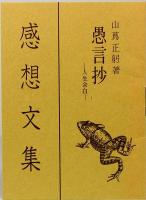 山蔦正躬著
愚言抄
―人生余白―
感想文集